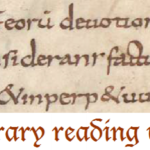 eorū devotion
sideranr factu
& inperp&uu
rary reading